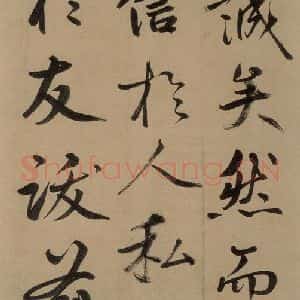 誠矣然而
信於人私
於友跋前
Shufawang.CN